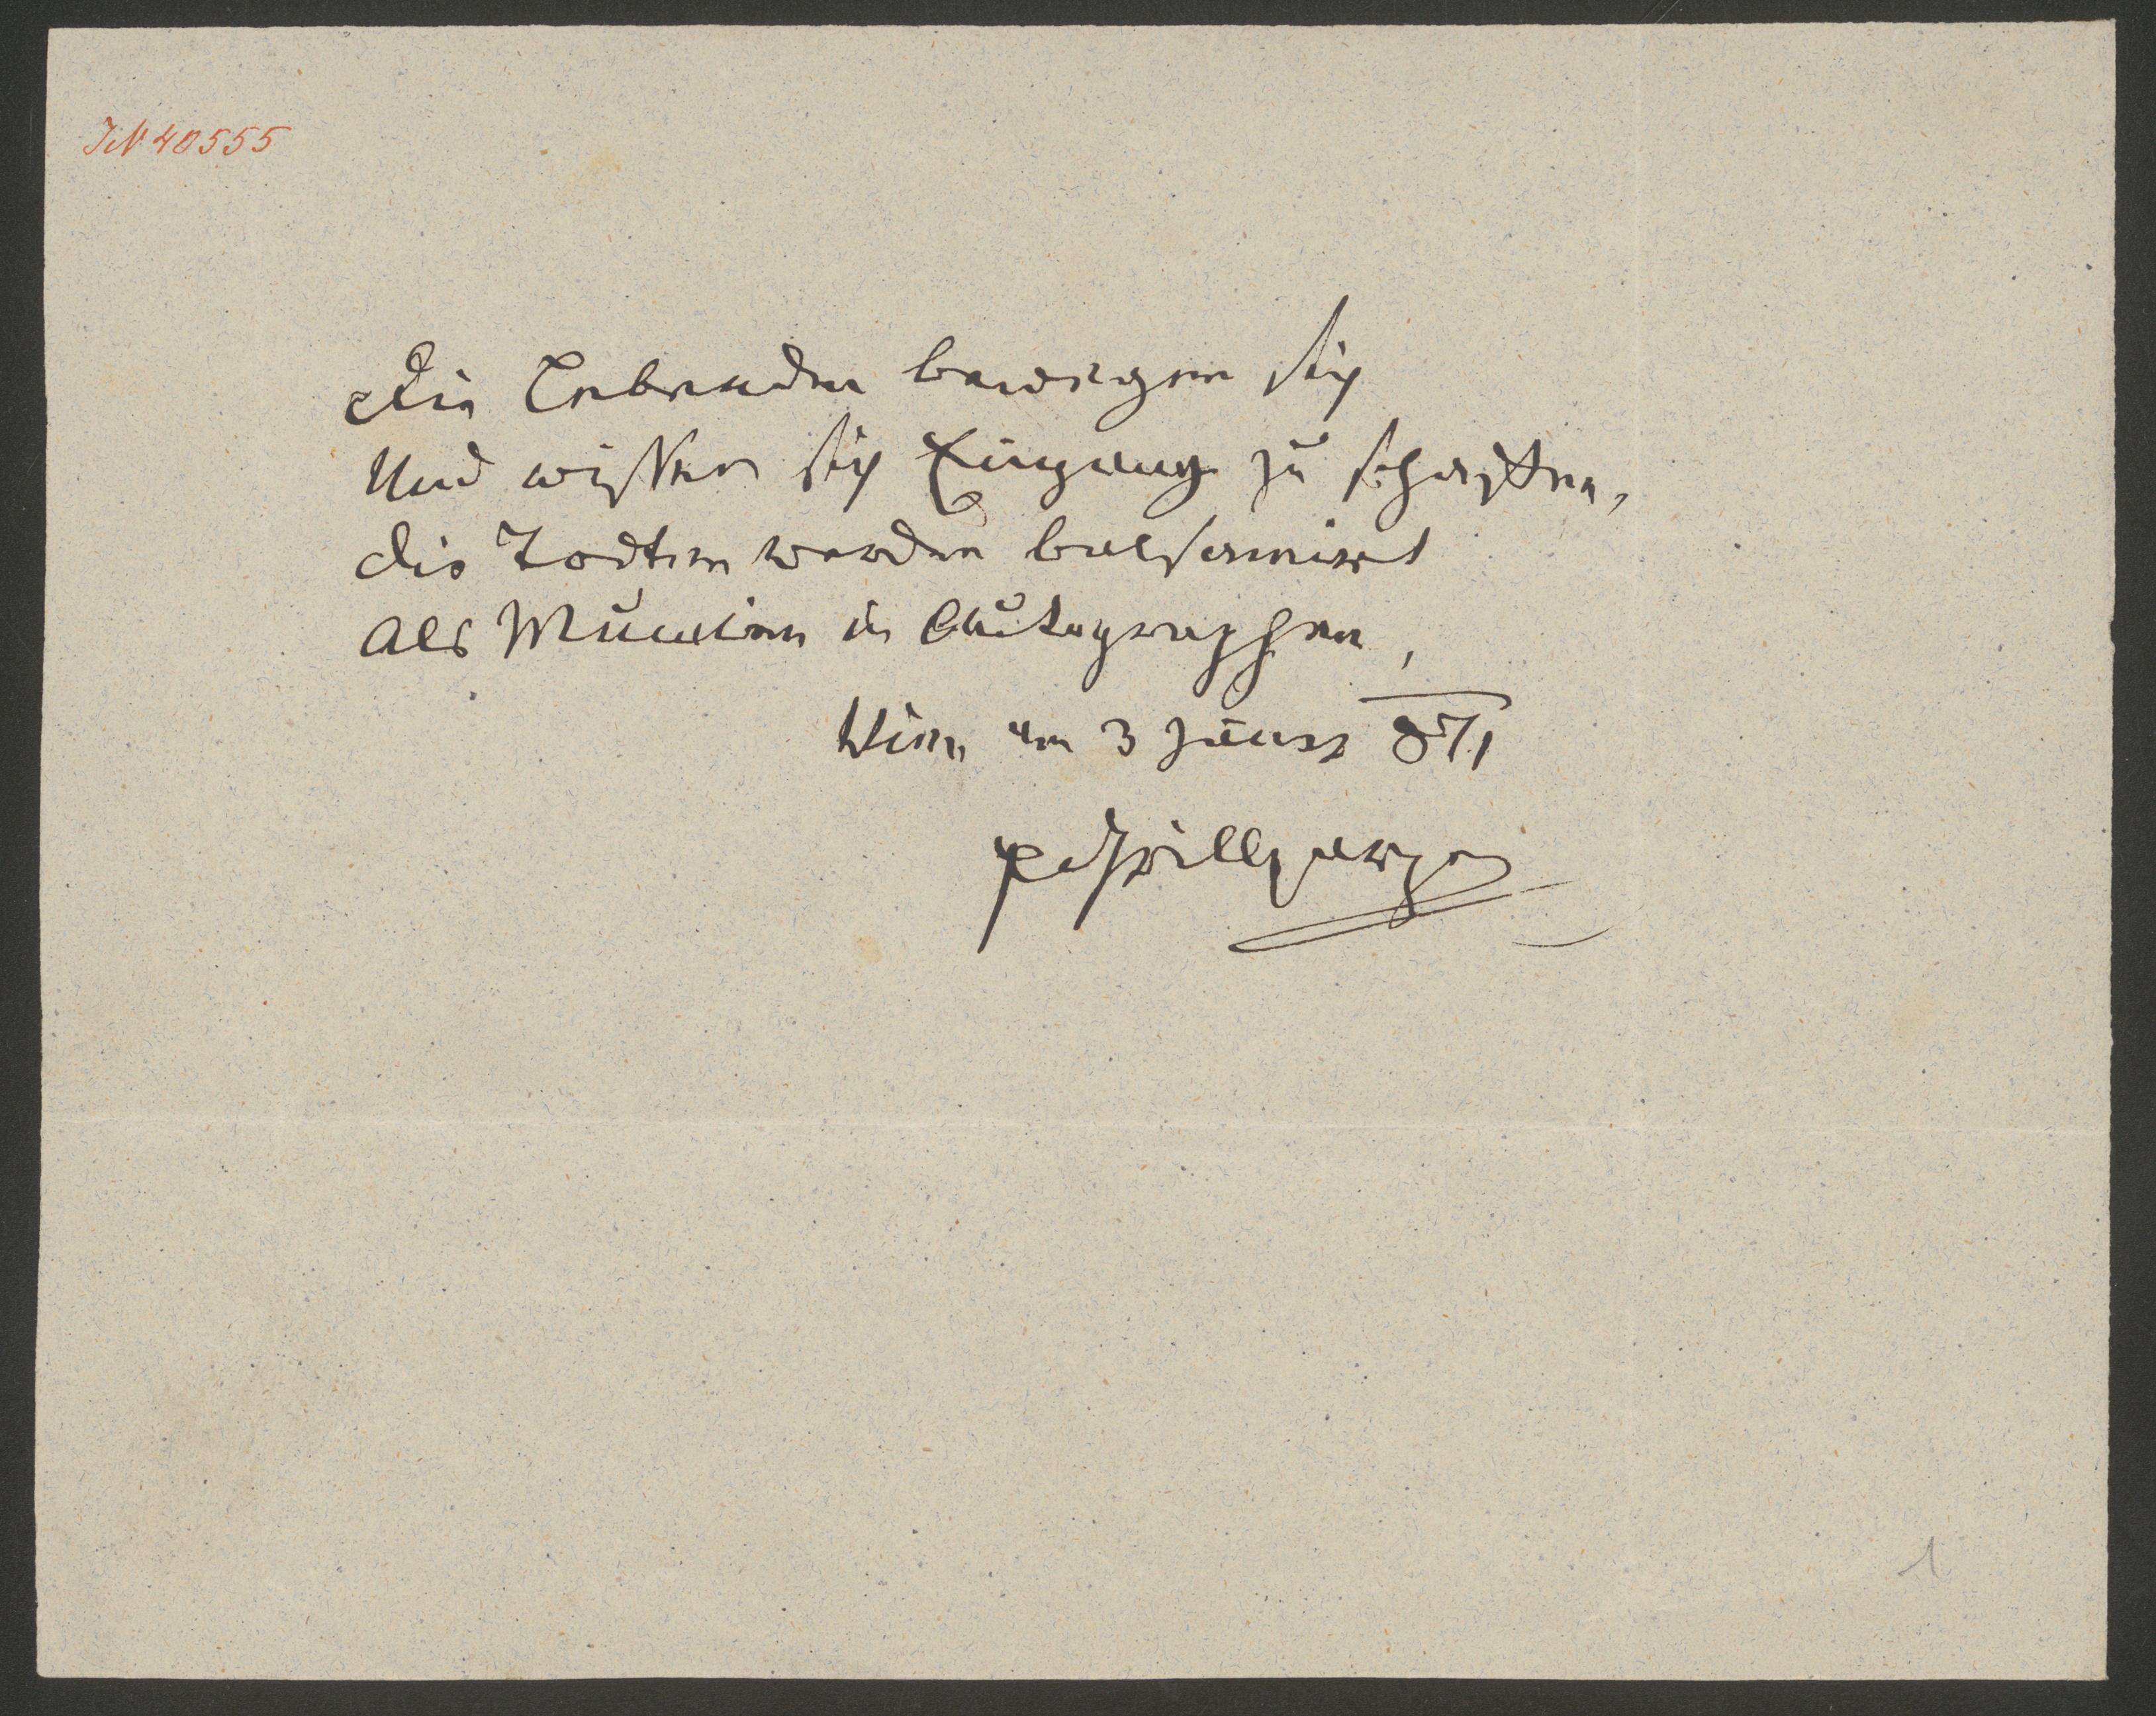 IN 40555
Die Lebenden bewegen sich
Und wissen sich Eingang zu schaffen,
die Todten werden balsamirt
als Mumien in Autographen,
Wien am 3 Jänner 871
Grillparzer
1